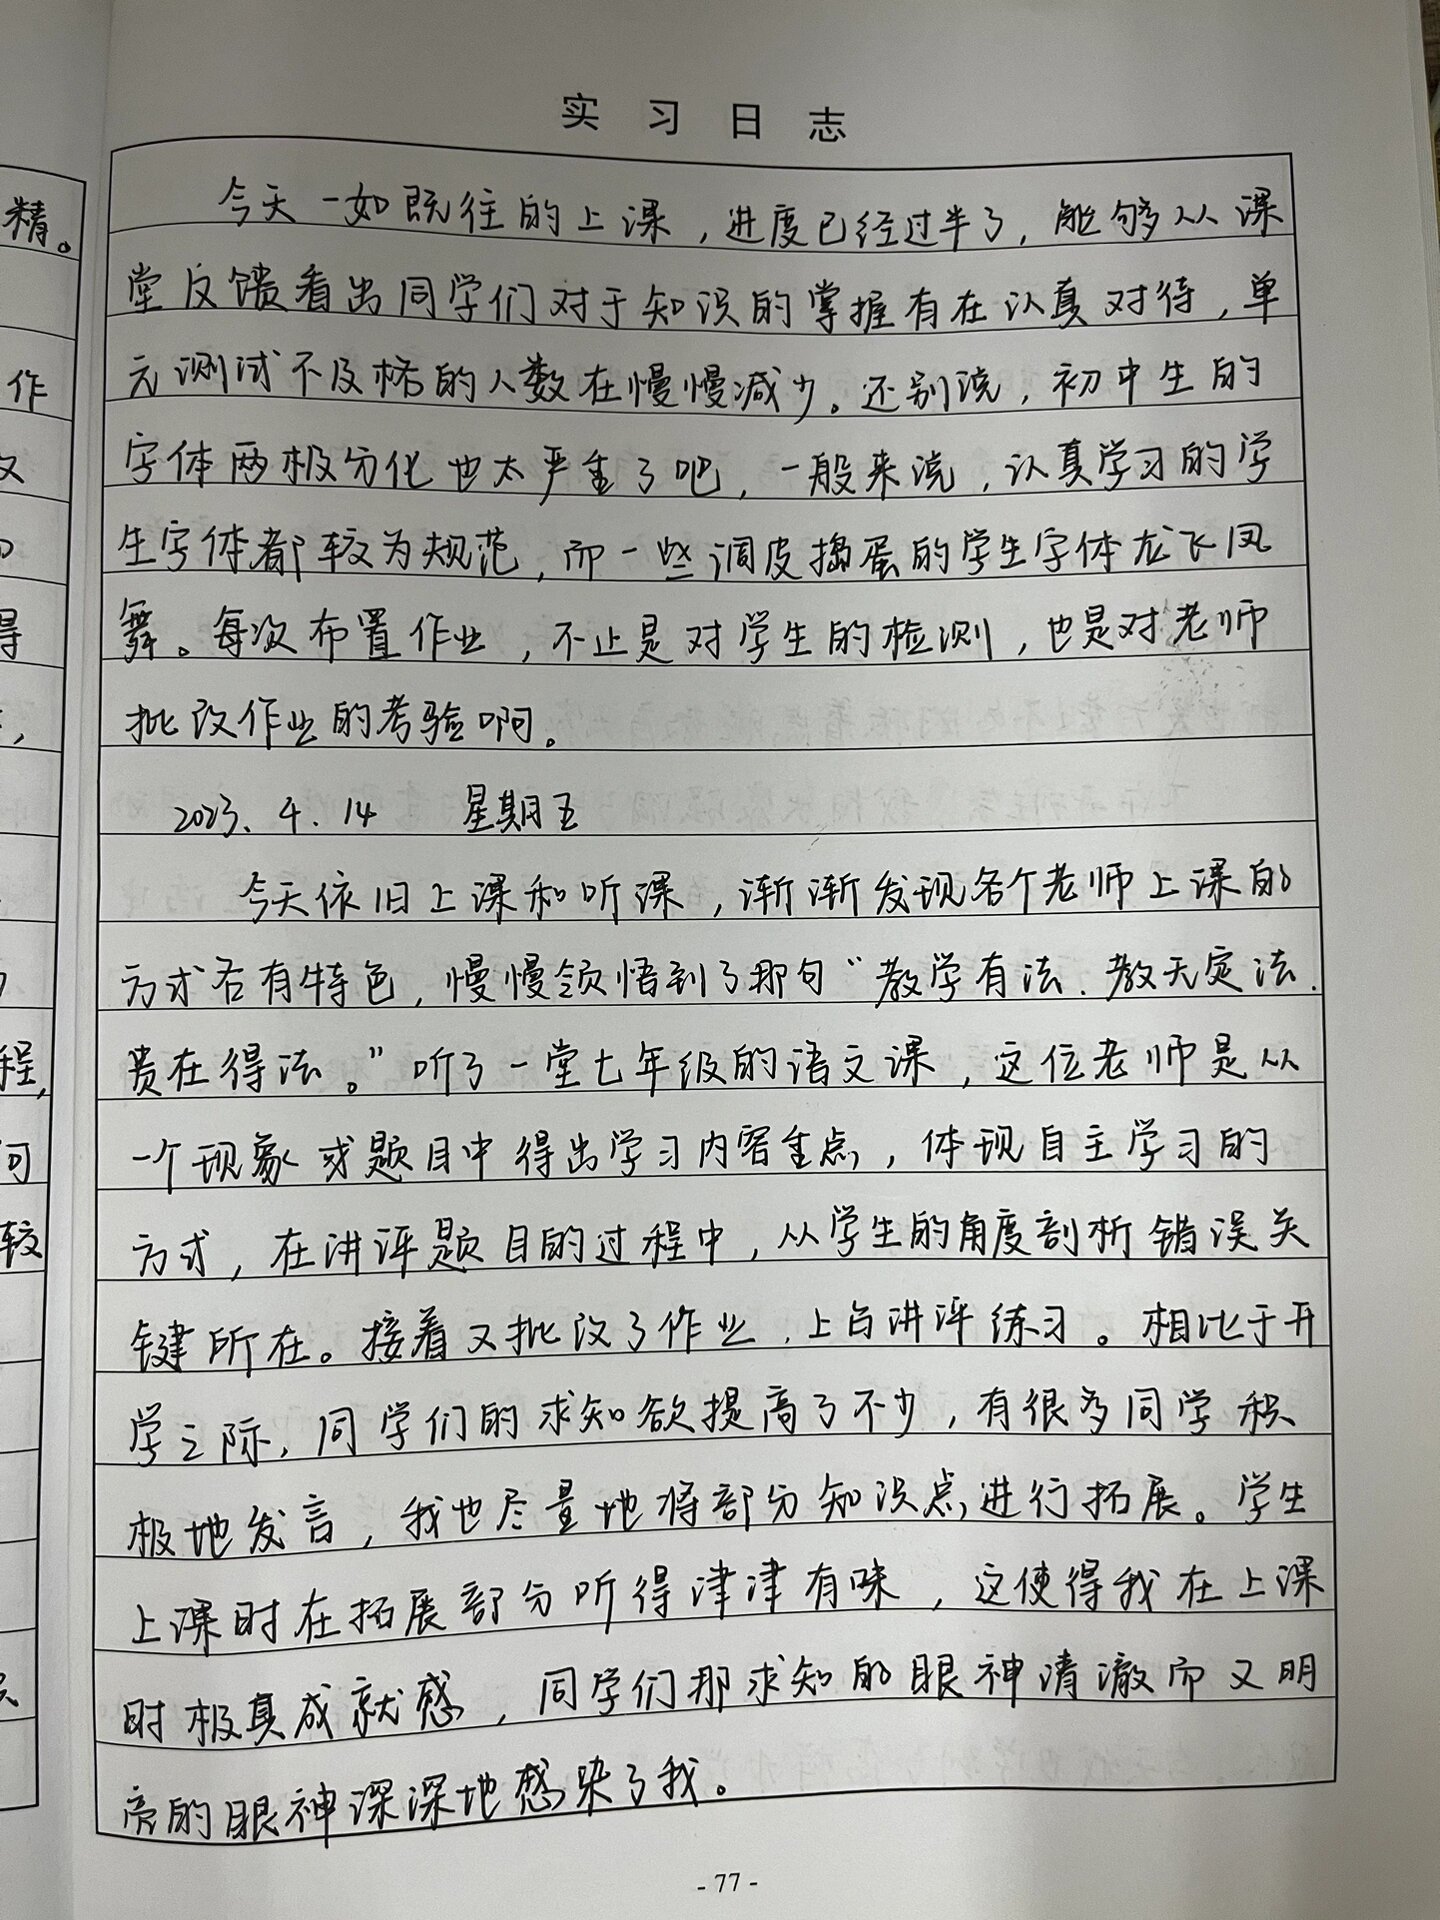 实习日志
今天一如既往的上课，进度已经过半了，能够从课
堂反馈看出同学们对于知识的掌握有在认真对待，单
元测试不及格的人数在慢慢减少。还别说，初中生的
字体两极分化也太严重了吧，一般来说，认真学习的学
生字体都较为规范，而一些调皮捣蛋的学生字体龙飞凤
舞。每次布置作业，不止是对学生的检测，也是对老师
批改作业的考验啊。
2023.4.14 星期五
今天依旧上课和听课，渐渐发现各个老师上课的
方式各有特色，慢慢领悟到了那句“教学有法，教无定法，
贵在得法。”听了一堂七年级的语文课，这位老师是从
一个现象或题目中得出学习内容重点，体现自主学习的
方式，在讲评题目的过程中，从学生的角度剖析错误关
键所在。接着又批改了作业，上台讲评练习。相比于开
学之际，同学们的求知欲提高了不少，有很多同学积
极地发言，我也尽量地将部分知识点进行拓展。学生
上课时在拓展部分听得津津有味，这使得我在上课
时极具成就感，同学们那求知的眼神清澈而又明
亮的眼神深深地感染了我。
- 77 -
精。
作
得
程，
何
较